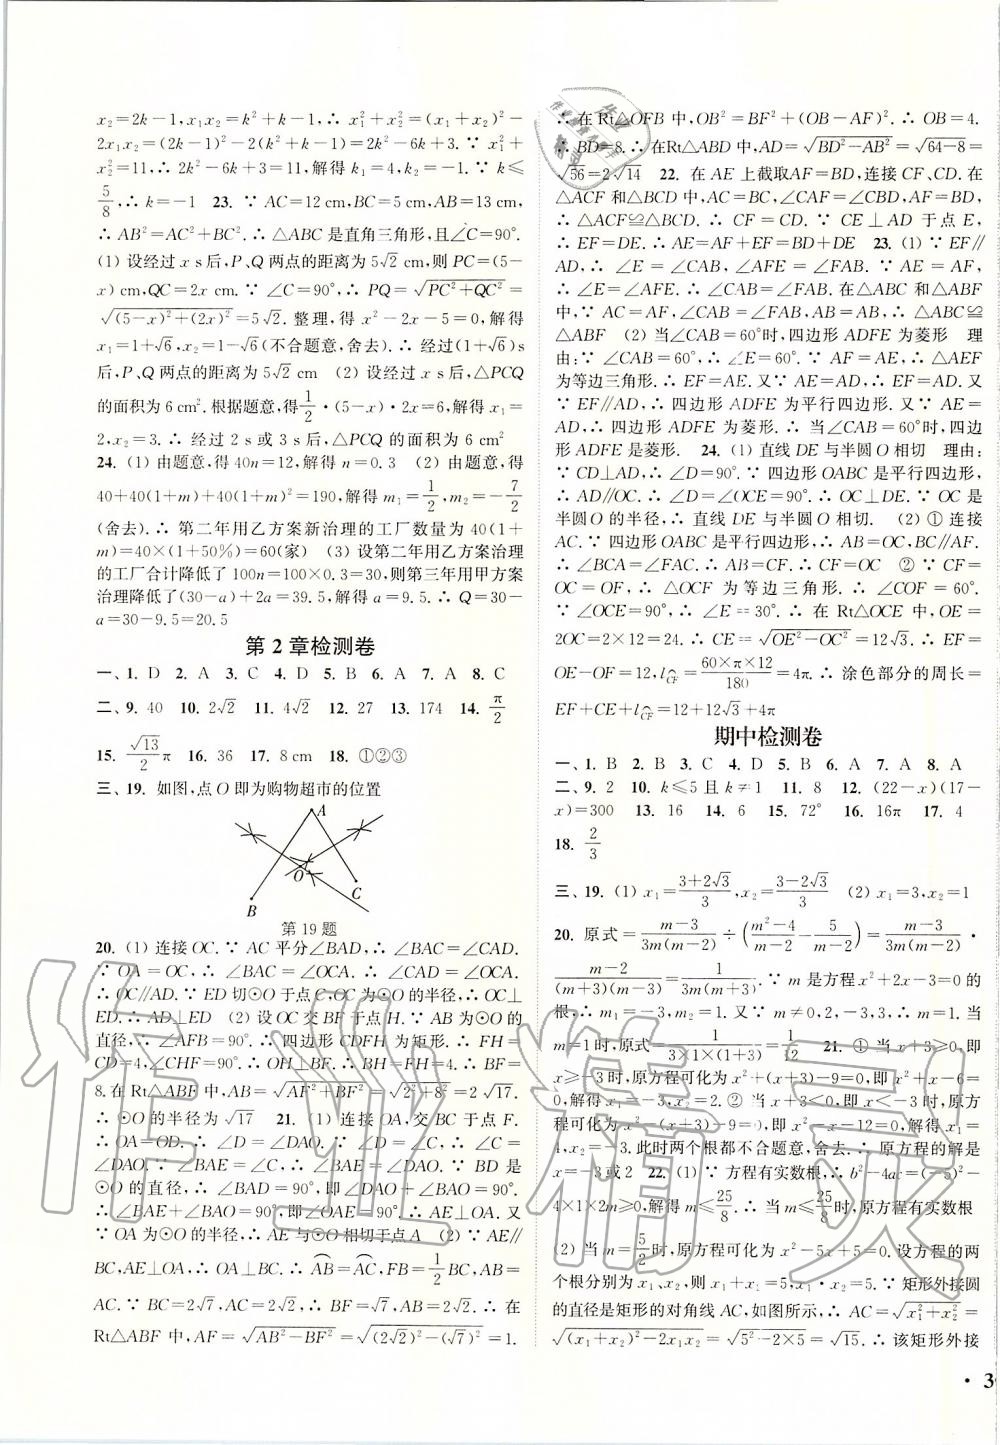 x₂=2k-1,x₁x₂=k²+k-1,∴ x₁²+x₂²=(x₁+x₂)²-
2x₁x₂=(2k-1)²-2(k²+k-1)=2k²-6k+3.∵ x₁²+
x₂²=11,∴ 2k²-6k+3=11,解得 k₁=4,k₂=-1.∵ k≤
5/8,∴ k=-1 23. ∵ AC=12 cm,BC=5 cm,AB=13 cm,
∴ AB²=AC²+BC².∴ △ABC 是直角三角形,且∠C=90°.
(1) 设经过 x s后,P、Q 两点的距离为 5√2 cm,则 PC=(5-
x) cm,QC=2x cm.∵ ∠C=90°,∴ PQ=√(PC²+QC²)=
√((5-x)²+(2x)²)=5√2.整理,得 x²-2x-5=0,解得
x₁=1+√6,x₂=1-√6(不合题意,舍去).∴ 经过(1+√6)s
后,P、Q 两点的距离为 5√2 cm (2) 设经过 x s后,△PCQ
的面积为 6 cm².根据题意,得1/2·(5-x)·2x=6,解得 x₁=
2,x₂=3.∴ 经过 2 s或 3 s后,△PCQ 的面积为 6 cm²
24. (1) 由题意,得 40n=12,解得 n=0.3 (2) 由题意,得
40+40(1+m)+40(1+m)²=190,解得 m₁=1/2,m₂=-7/2
(舍去).∴ 第二年用乙方案新治理的工厂数量为 40(1+
m)=40×(1+50%)=60(家) (3) 设第二年用乙方案治理
的工厂合计降低了 100n=100×0.3=30,则第三年用甲方案
治理降低了(30-a)+2a=39.5,解得 a=9.5.∴ Q=30-
a=30-9.5=20.5
第 2 章检测卷
一、1. D 2. A 3. C 4. D 5. B 6. A 7. A 8. C
二、9. 40 10. 2√2 11. 4√2 12. 27 13. 174 14. π/2
15. √13/2 π 16. 36 17. 8 cm 18. ①②③
三、19. 如图,点 O 即为购物超市的位置
A
O
C
B
第 19 题
20. (1) 连接 OC.∵ AC 平分∠BAD,∴ ∠BAC=∠CAD.
∵ OA=OC,∴ ∠BAC=∠OCA.∴ ∠CAD=∠OCA.
∴ OC∥AD.∵ ED 切⊙O 于点 C,OC 为⊙O 的半径,∴ OC⊥
ED.∴ AD⊥ED (2) 设 OC 交 BF 于点 H.∵ AB 为⊙O 的
直径,∴ ∠AFB=90°.∴ 四边形 CDFH 为矩形.∴ FH=
CD=4,∠CHF=90°.∴ OH⊥BF.∴ BH=FH=4.∴ BF=
8.在 Rt△ABF 中,AB=√(AF²+BF²)=√(2²+8²)=2√17.
∴ ⊙O 的半径为√17 21. (1) 连接 OA,交 BC 于点 F.
∵ OA=OD,∴ ∠D=∠DAO.∵ ∠D=∠C,∴ ∠C=
∠DAO.∵ ∠BAE=∠C,∴ ∠BAE=∠DAO.∵ BD 是
⊙O 的直径,∴ ∠BAD=90°,即∠DAO+∠BAO=90°.
∴ ∠BAE+∠BAO=90°,即∠OAE=90°.∴ AE⊥OA.又
∵ OA 为⊙O 的半径,∴ AE 与⊙O 相切于点 A (2) ∵ AE∥
BC,AE⊥OA,∴ OA⊥BC.∴ A͡B=A͡C,FB=1/2 BC.∴ AB=
AC.∵ BC=2√7,AC=2√2,∴ BF=√7,AB=2√2.∴ 在
Rt△ABF 中,AF=√(AB²-BF²)=√((2√2)²-(√7)²)=1.
∴ 在 Rt△OFB 中,OB²=BF²+(OB-AF)².∴ OB=4.
∴ BD=8.∴ 在Rt△ABD中,AD=√(BD²-AB²)=√(64-8)=
√56=2√14 22. 在 AE 上截取AF=BD,连接 CF、CD.在
△ACF 和△BCD 中,AC=BC,∠CAF=∠CBD,AF=BD,
∴ △ACF≌△BCD.∴ CF=CD.∵ CE⊥AD 于点 E,
∴ EF=DE.∴ AE=AF+EF=BD+DE 23. (1) ∵ EF∥
AD,∴ ∠E=∠CAB,∠AFE=∠FAB.∵ AE=AF,
∴ ∠E=∠AFE.∴ ∠CAB=∠FAB.在△ABC和△ABF
中,∵ AC=AF,∠CAB=∠FAB,AB=AB,∴ △ABC≌
△ABF (2) 当∠CAB=60°时,四边形 ADFE 为菱形 理
由:∵ ∠CAB=60°,∴ ∠E=60°.∵ AF=AE,∴ △AEF
为等边三角形.∴ EF=AE.又∵ AE=AD,∴ EF=AD.又
∵ EF∥AD,∴ 四边形 ADFE 为平行四边形.又∵ AE=
AD,∴ 四边形 ADFE 为菱形.∴ 当∠CAB=60°时,四边
形 ADFE 是菱形. 24. (1) 直线 DE 与半圆 O 相切 理由:
∵ CD⊥AD,∴ ∠D=90°.∵ 四边形 OABC 是平行四边形,
∴ AD∥OC.∴ ∠D=∠OCE=90°.∴ OC⊥DE.∵ OC 是
半圆 O 的半径,∴ 直线 DE 与半圆 O 相切. (2) ① 连接
AC.∵ 四边形 OABC 是平行四边形,∴ AB=OC,BC∥AF.
∴ ∠BCA=∠FAC.∴ AB=CF.∴ CF=OC ② ∵ CF=
OC=OF,∴ △OCF 为等边三角形.∴ ∠COF=60°.
∵ ∠OCE=90°,∴ ∠E=30°.∴ 在 Rt△OCE 中,OE=
2OC=2×12=24.∴ CE=√(OE²-OC²)=12√3.∴ EF=
OE-OF=12,l C͡F=60×π×12/180=4π.∴ 涂色部分的周长=
EF+CE+l C͡F=12+12√3+4π
期中检测卷
一、1. B 2. B 3. C 4. D 5. B 6. A 7. A 8. A
二、9. 2 10. k≤5 且 k≠1 11. 8 12. (22-x)(17-
x)=300 13. 16 14. 6 15. 72° 16. 16π 17. 4
18. 2/3
三、19. (1) x₁=(3+2√3)/3,x₂=(3-2√3)/3 (2) x₁=3,x₂=1
20. 原式=(m-3)/(3m(m-2))÷((m²-4)/(m-2)-5/(m-2))=(m-3)/(3m(m-2))·
(m-2)/((m+3)(m-3))=1/(3m(m+3)).∵ m 是方程 x²+2x-3=0 的
根,∴ m₁=-3,m₂=1.又∵ m≠0,2,-3,3,∴ m=1.当
m=1时,原式=1/(3×1×(1+3))=1/12 21. ① 当 x+3≥0,即
x≥-3 时,原方程可化为 x²+(x+3)-9=0,即 x²+x-6=
0,解得 x₁=-3,x₂=2.② 当 x+3<0,即 x<-3 时,原方
程可化为 x²-(x+3)-9=0,即 x²-x-12=0,解得 x₁=
4,x₂=-3.此时两个根都不合题意,舍去.∴ 原方程的解是
x=-3或2 22. (1) ∵ 方程有实数根,∴ b²-4ac=(-5)²-
4×1×2m≥0,解得 m≤25/8.∴ 当 m≤25/8时,原方程有实数根
(2) 当 m=5/2时,原方程可化为 x²-5x+5=0.设方程的两
个根分别为 x₁、x₂,则 x₁+x₂=5,x₁·x₂=5.∵ 矩形外接圆
的直径是矩形的对角线 AC,如图所示,∴ AC=√(x₁²+x₂²)=
√((x₁+x₂)²-2x₁x₂)=√(5²-2×5)=√15.∴ 该矩形外接
· 3
作业精灵